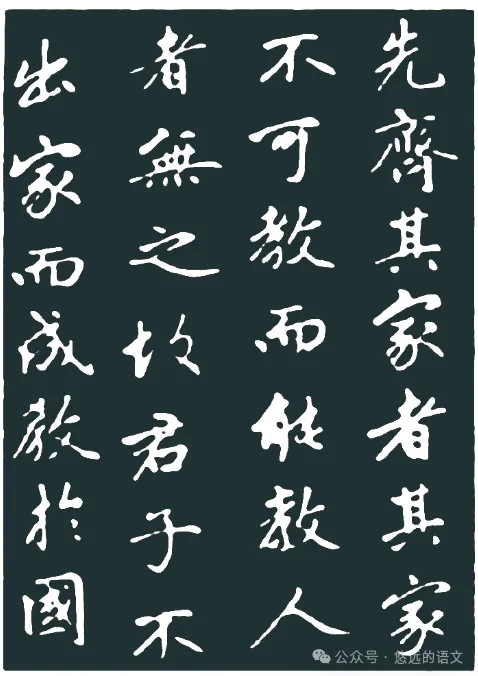 先齊其家者其家
不可教而能教人
者無之故君子不
出家而成教於國
公众号·悠远的语文